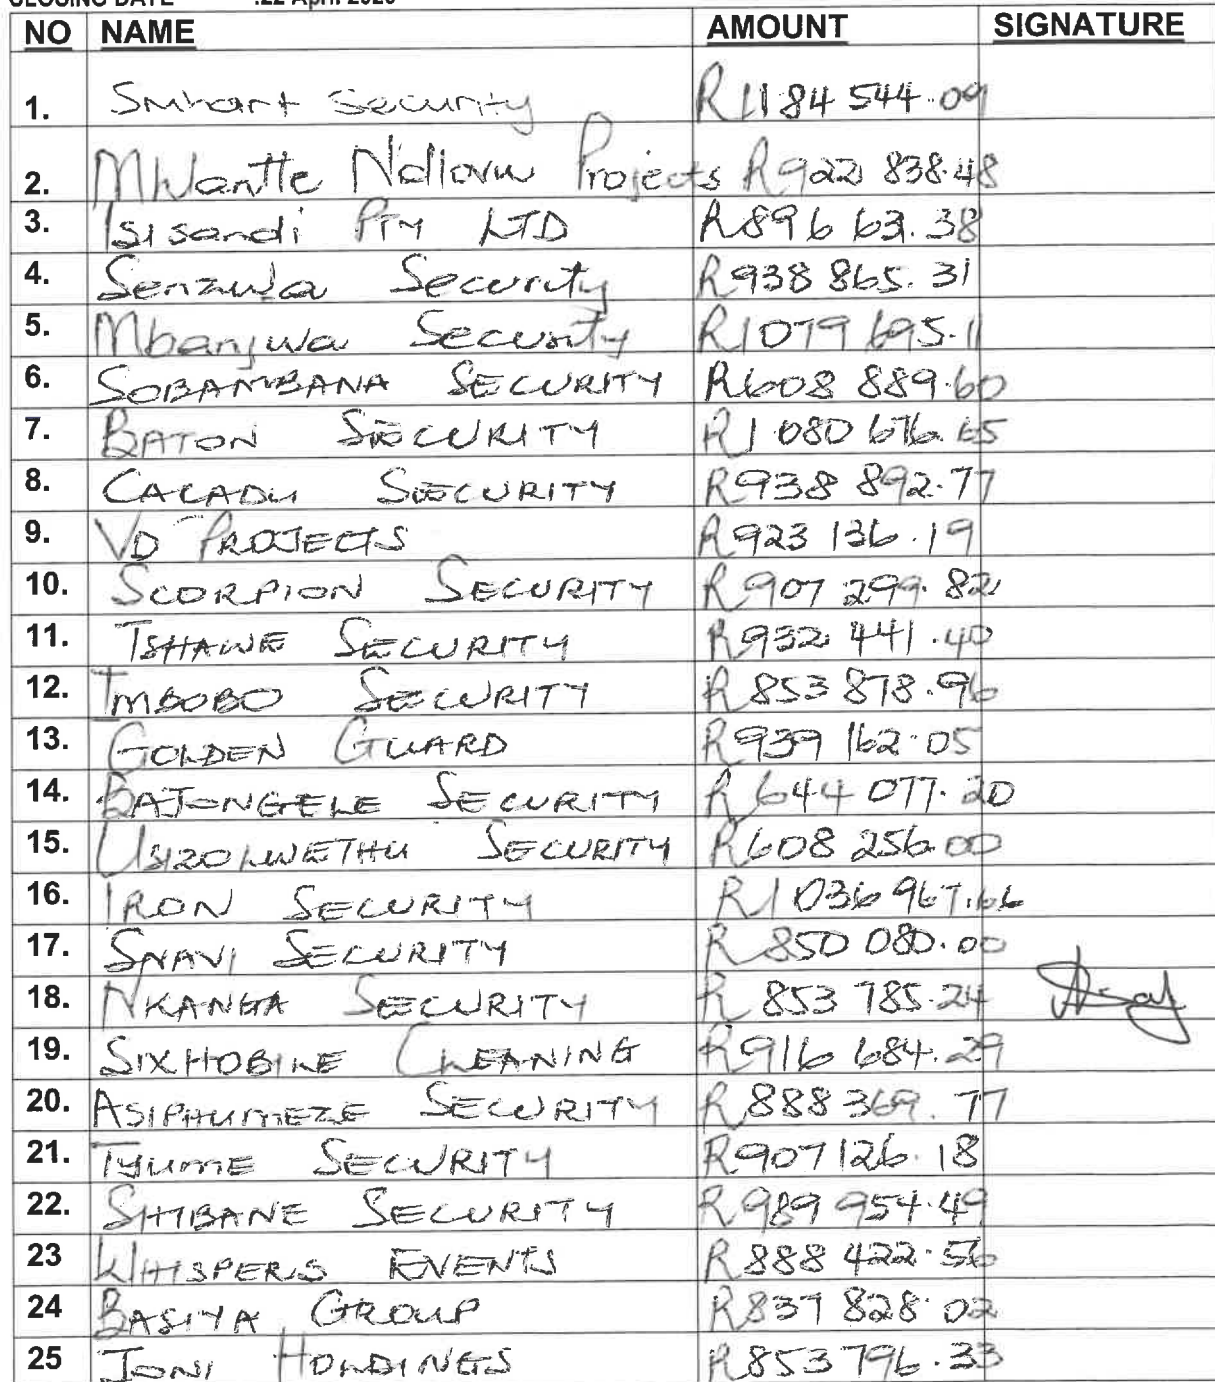 CLOSING DATE :22 April 2020
NO NAME AMOUNT SIGNATURE
1. Smhart Security R1184 544.09
2. Mhlantle Ndlovu Projects R922 838.48
3. Isisandi PTY LTD R896 63.38
4. Senzwa Security R938 865.31
5. Mbanjwa Security R1079 695.11
6. SOBAMBANA SECURITY R608 889.60
7. BATON SECURITY R1 080 676.65
8. CACADU SECURITY R938 892.77
9. VD PROJECTS R923 136.19
10. SCORPION SECURITY R907 299.82
11. TSHAWE SECURITY R932 441.40
12. IMBOBO SECURITY R853 878.96
13. GOLDEN GUARD R939 162.05
14. BAJONGELE SECURITY R644 077.20
15. USIZOLWETHU SECURITY R608 256.00
16. IRON SECURITY R1 036 967.66
17. SNAVI SECURITY R850 080.00
18. NKANGA SECURITY R853 785.24
19. SIXHOBILE CLEANING R916 684.29
20. ASIPHUMEZE SECURITY R888 369.77
21. TYUME SECURITY R907 126.18
22. SHIBANE SECURITY R989 954.49
23 WHISPERS EVENTS R888 422.56
24 BASIYA GROUP R837 828.02
25 JONI HOLDINGS R853 796.33